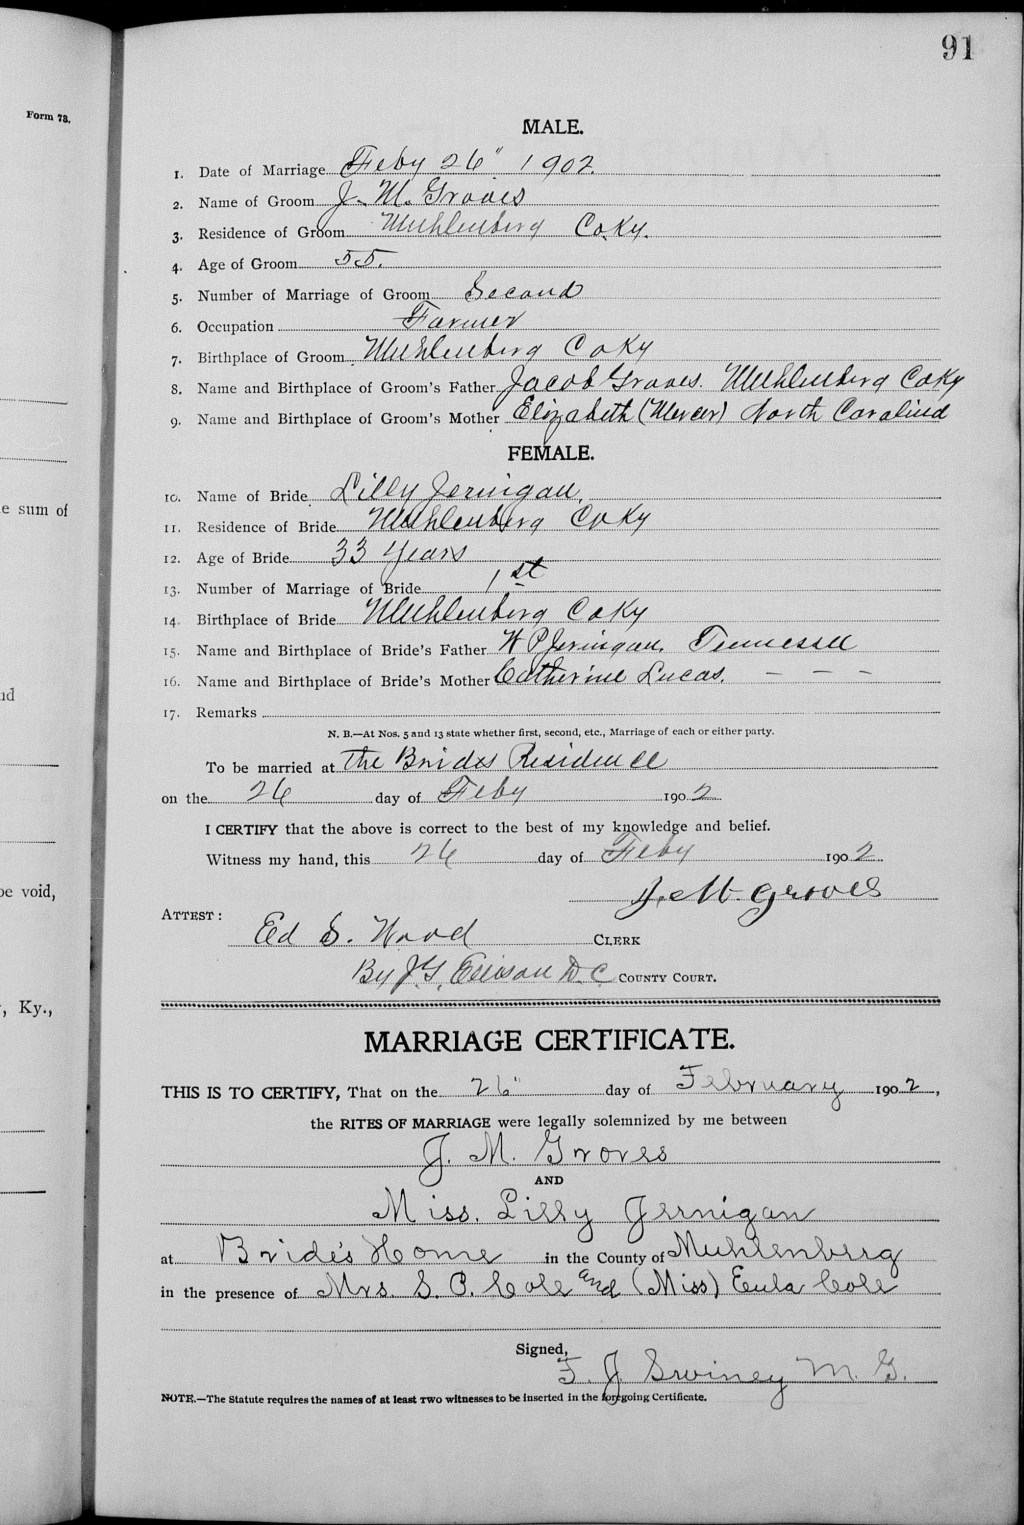 91
Form 73.
MALE.
1. Date of Marriage Feby 26" 1902.
2. Name of Groom J. M. Groves
3. Residence of Groom Muhlenberg Co. Ky.
4. Age of Groom 55.
5. Number of Marriage of Groom Second
6. Occupation Farmer
7. Birthplace of Groom Muhlenberg Co Ky
8. Name and Birthplace of Groom's Father Jacob Groves. Muhlenberg Co Ky
9. Name and Birthplace of Groom's Mother Elizabeth (Mercer) North Carolina
FEMALE.
10. Name of Bride Lilly Jernigan.
e sum of
11. Residence of Bride Muhlenberg Co Ky
12. Age of Bride 33 Years
13. Number of Marriage of Bride 1st
14. Birthplace of Bride Muhlenberg Co Ky
15. Name and Birthplace of Bride's Father W P Jernigan. Tennessee
16. Name and Birthplace of Bride's Mother Catherine Lucas. – – –
17. Remarks
N. B.—At Nos. 5 and 13 state whether first, second, etc., Marriage of each or either party.
To be married at the Brides Residence
on the 26 day of Feby 1902
I CERTIFY that the above is correct to the best of my knowledge and belief.
Witness my hand, this 26 day of Feby 1902.
be void,
J. M. Groves
ATTEST:
Ed S. Wood CLERK
By J. G. Ellison D. C. COUNTY COURT.
, Ky.,
MARRIAGE CERTIFICATE.
THIS IS TO CERTIFY, That on the 26" day of February 1902,
the RITES OF MARRIAGE were legally solemnized by me between
J. M. Groves
AND
Miss. Lilly Jernigan
at Bride's Home in the County of Muhlenberg
in the presence of Mrs. S. P. Cole and (Miss) Eula Cole
Signed,
F. J. Swiney M. G.
NOTE.—The Statute requires the names of at least TWO witnesses to be inserted in the foregoing Certificate.